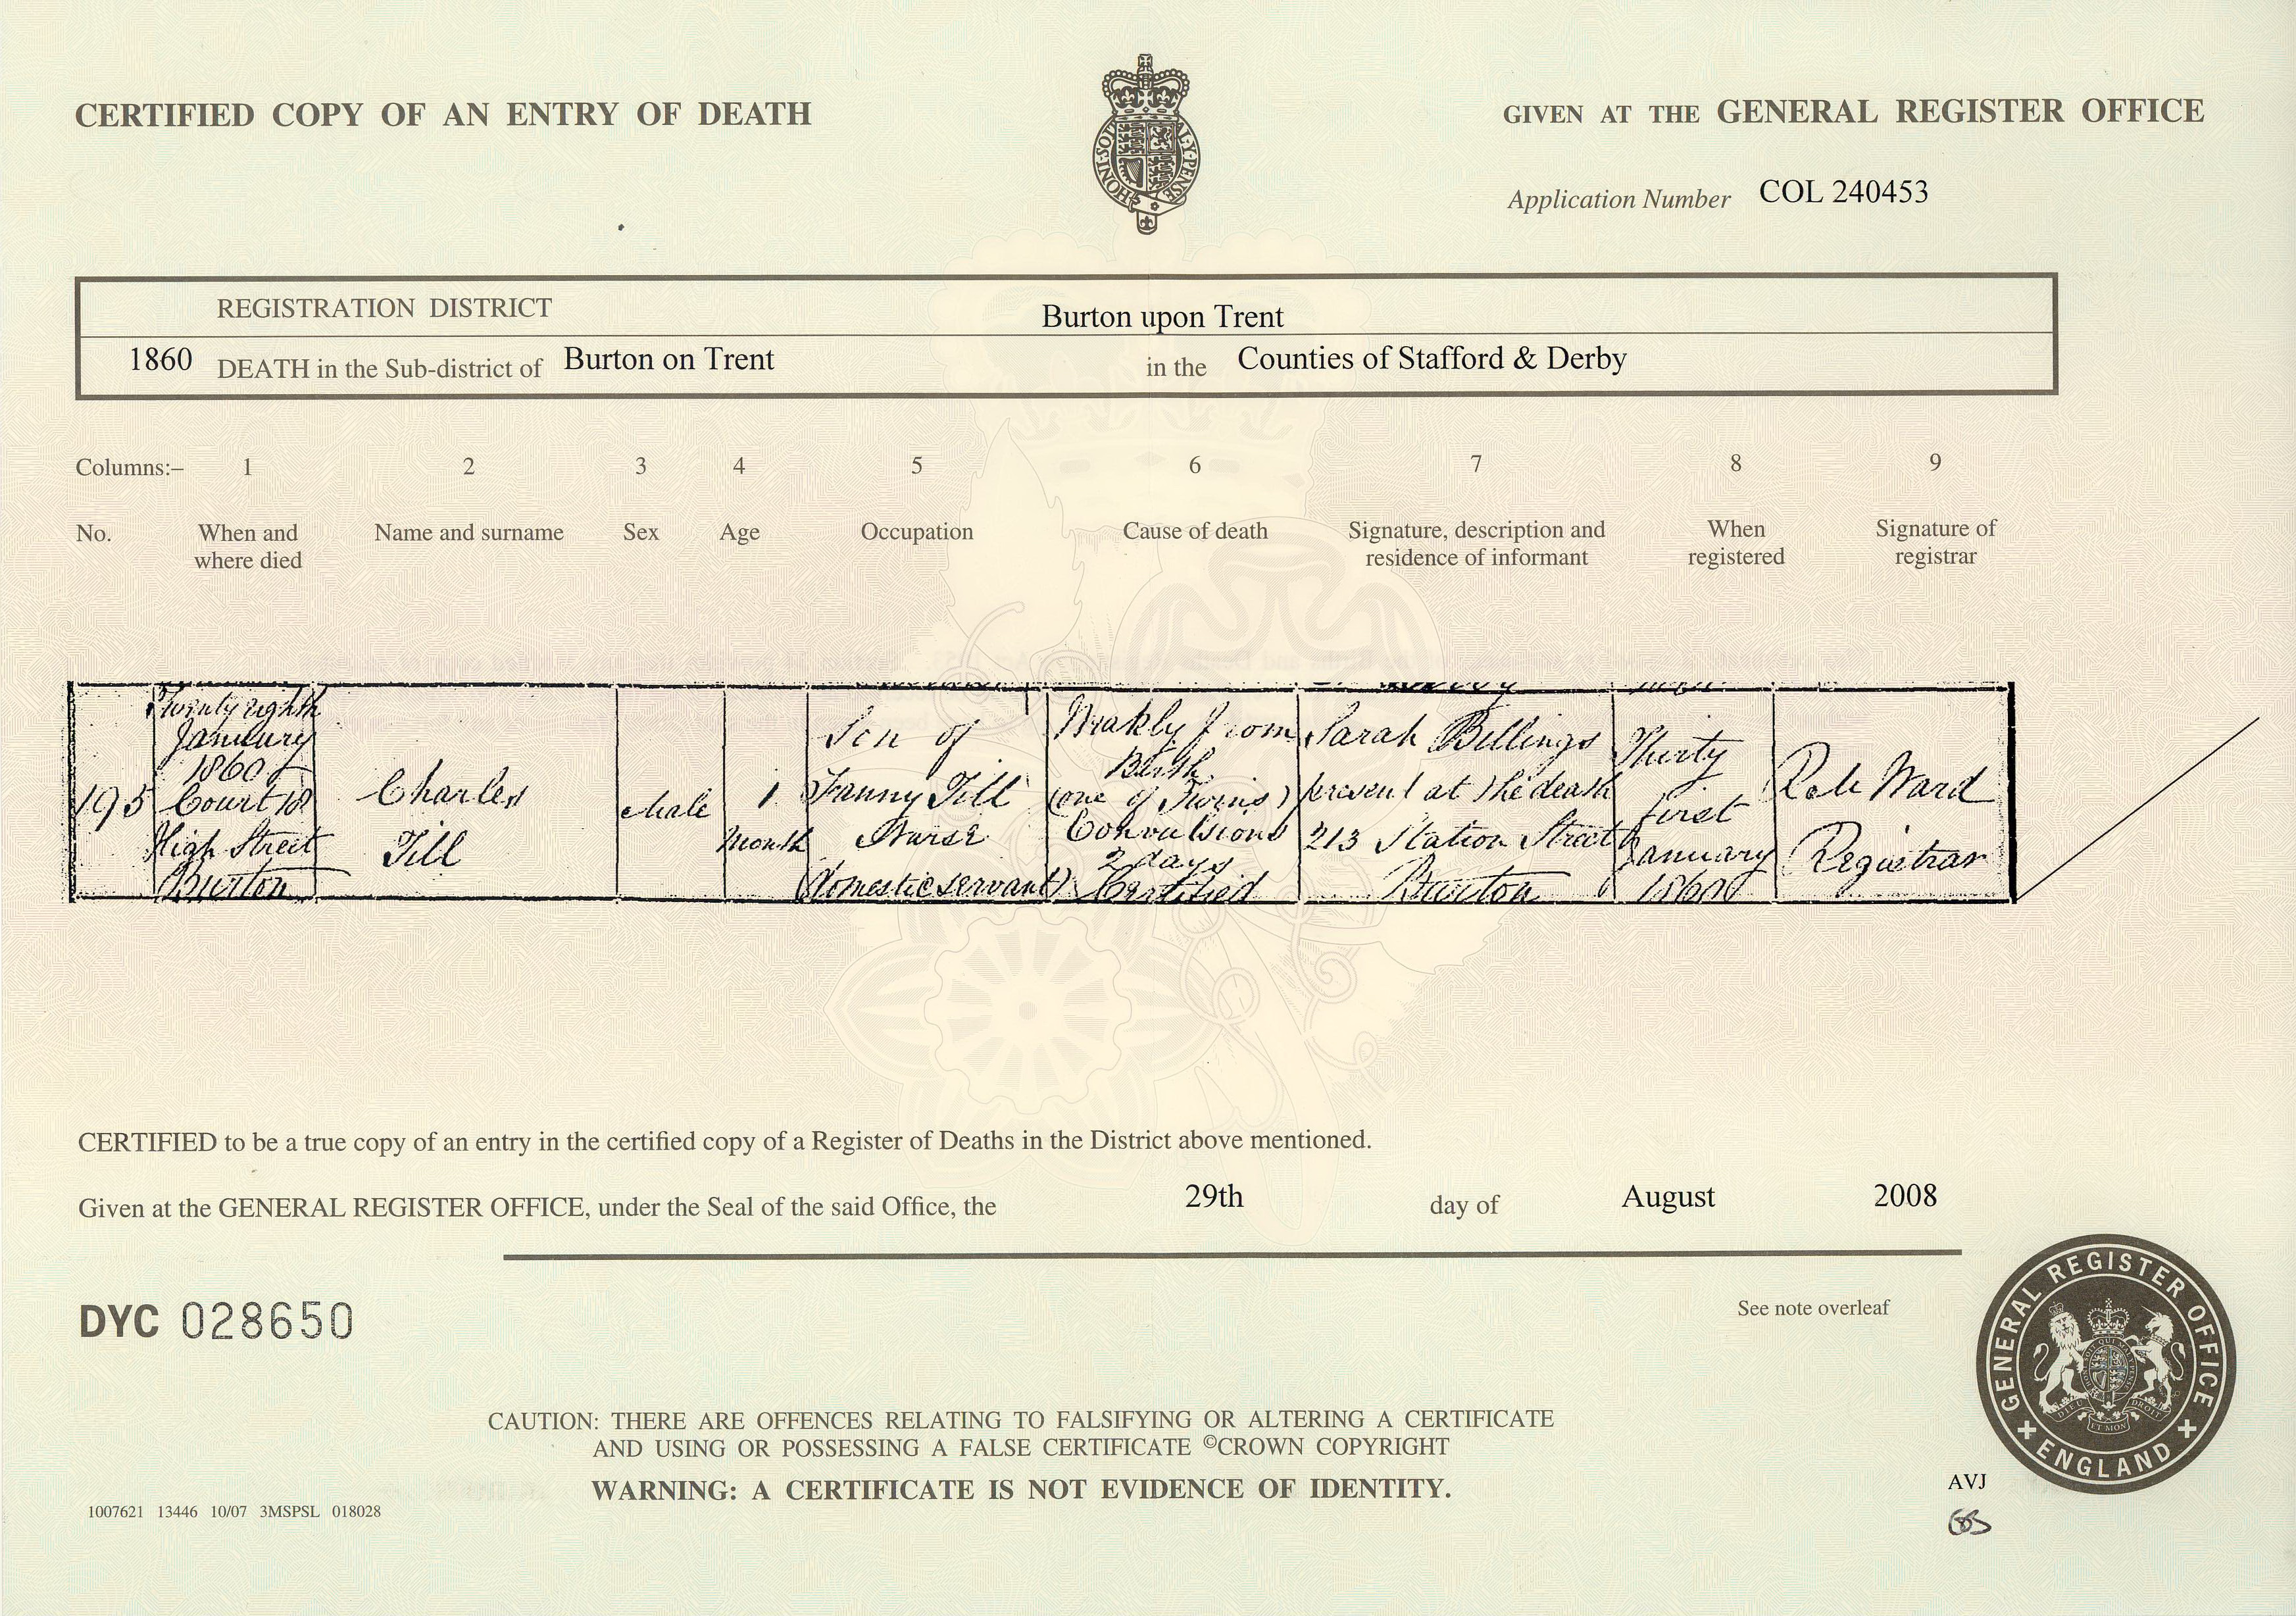 CERTIFIED COPY OF AN ENTRY OF DEATH
GIVEN AT THE GENERAL REGISTER OFFICE
HONI·SOI AL·Y·PENSE
Application Number COL 240453
REGISTRATION DISTRICT Burton upon Trent
1860 DEATH in the Sub-district of Burton on Trent in the Counties of Stafford & Derby
Columns:– 1 2 3 4 5 6 7 8 9
No. When and where died Name and surname Sex Age Occupation Cause of death Signature, description and residence of informant When registered Signature of registrar
195
Twenty eighth
January
1860
Court 18
High Street
Burton
Charles
Till
Male
1
Month
Son of
Fanny Till
Nurse
(Domestic servant)
Weakly from
Birth
(one of Twins)
Convulsions
2 days
Certified
Sarah Billings
present at the death
213 Station Street
Burton
Thirty
first
January
1860
Ward
Registrar
CERTIFIED to be a true copy of an entry in the certified copy of a Register of Deaths in the District above mentioned.
Given at the GENERAL REGISTER OFFICE, under the Seal of the said Office, the 29th day of August 2008
DYC 028650
See note overleaf
GENERAL REGISTER OFFICE
DIEU ET MON DROIT
ENGLAND
CAUTION: THERE ARE OFFENCES RELATING TO FALSIFYING OR ALTERING A CERTIFICATE
AND USING OR POSSESSING A FALSE CERTIFICATE ©CROWN COPYRIGHT
WARNING: A CERTIFICATE IS NOT EVIDENCE OF IDENTITY.
AVJ
1007621 13446 10/07 3MSPSL 018028